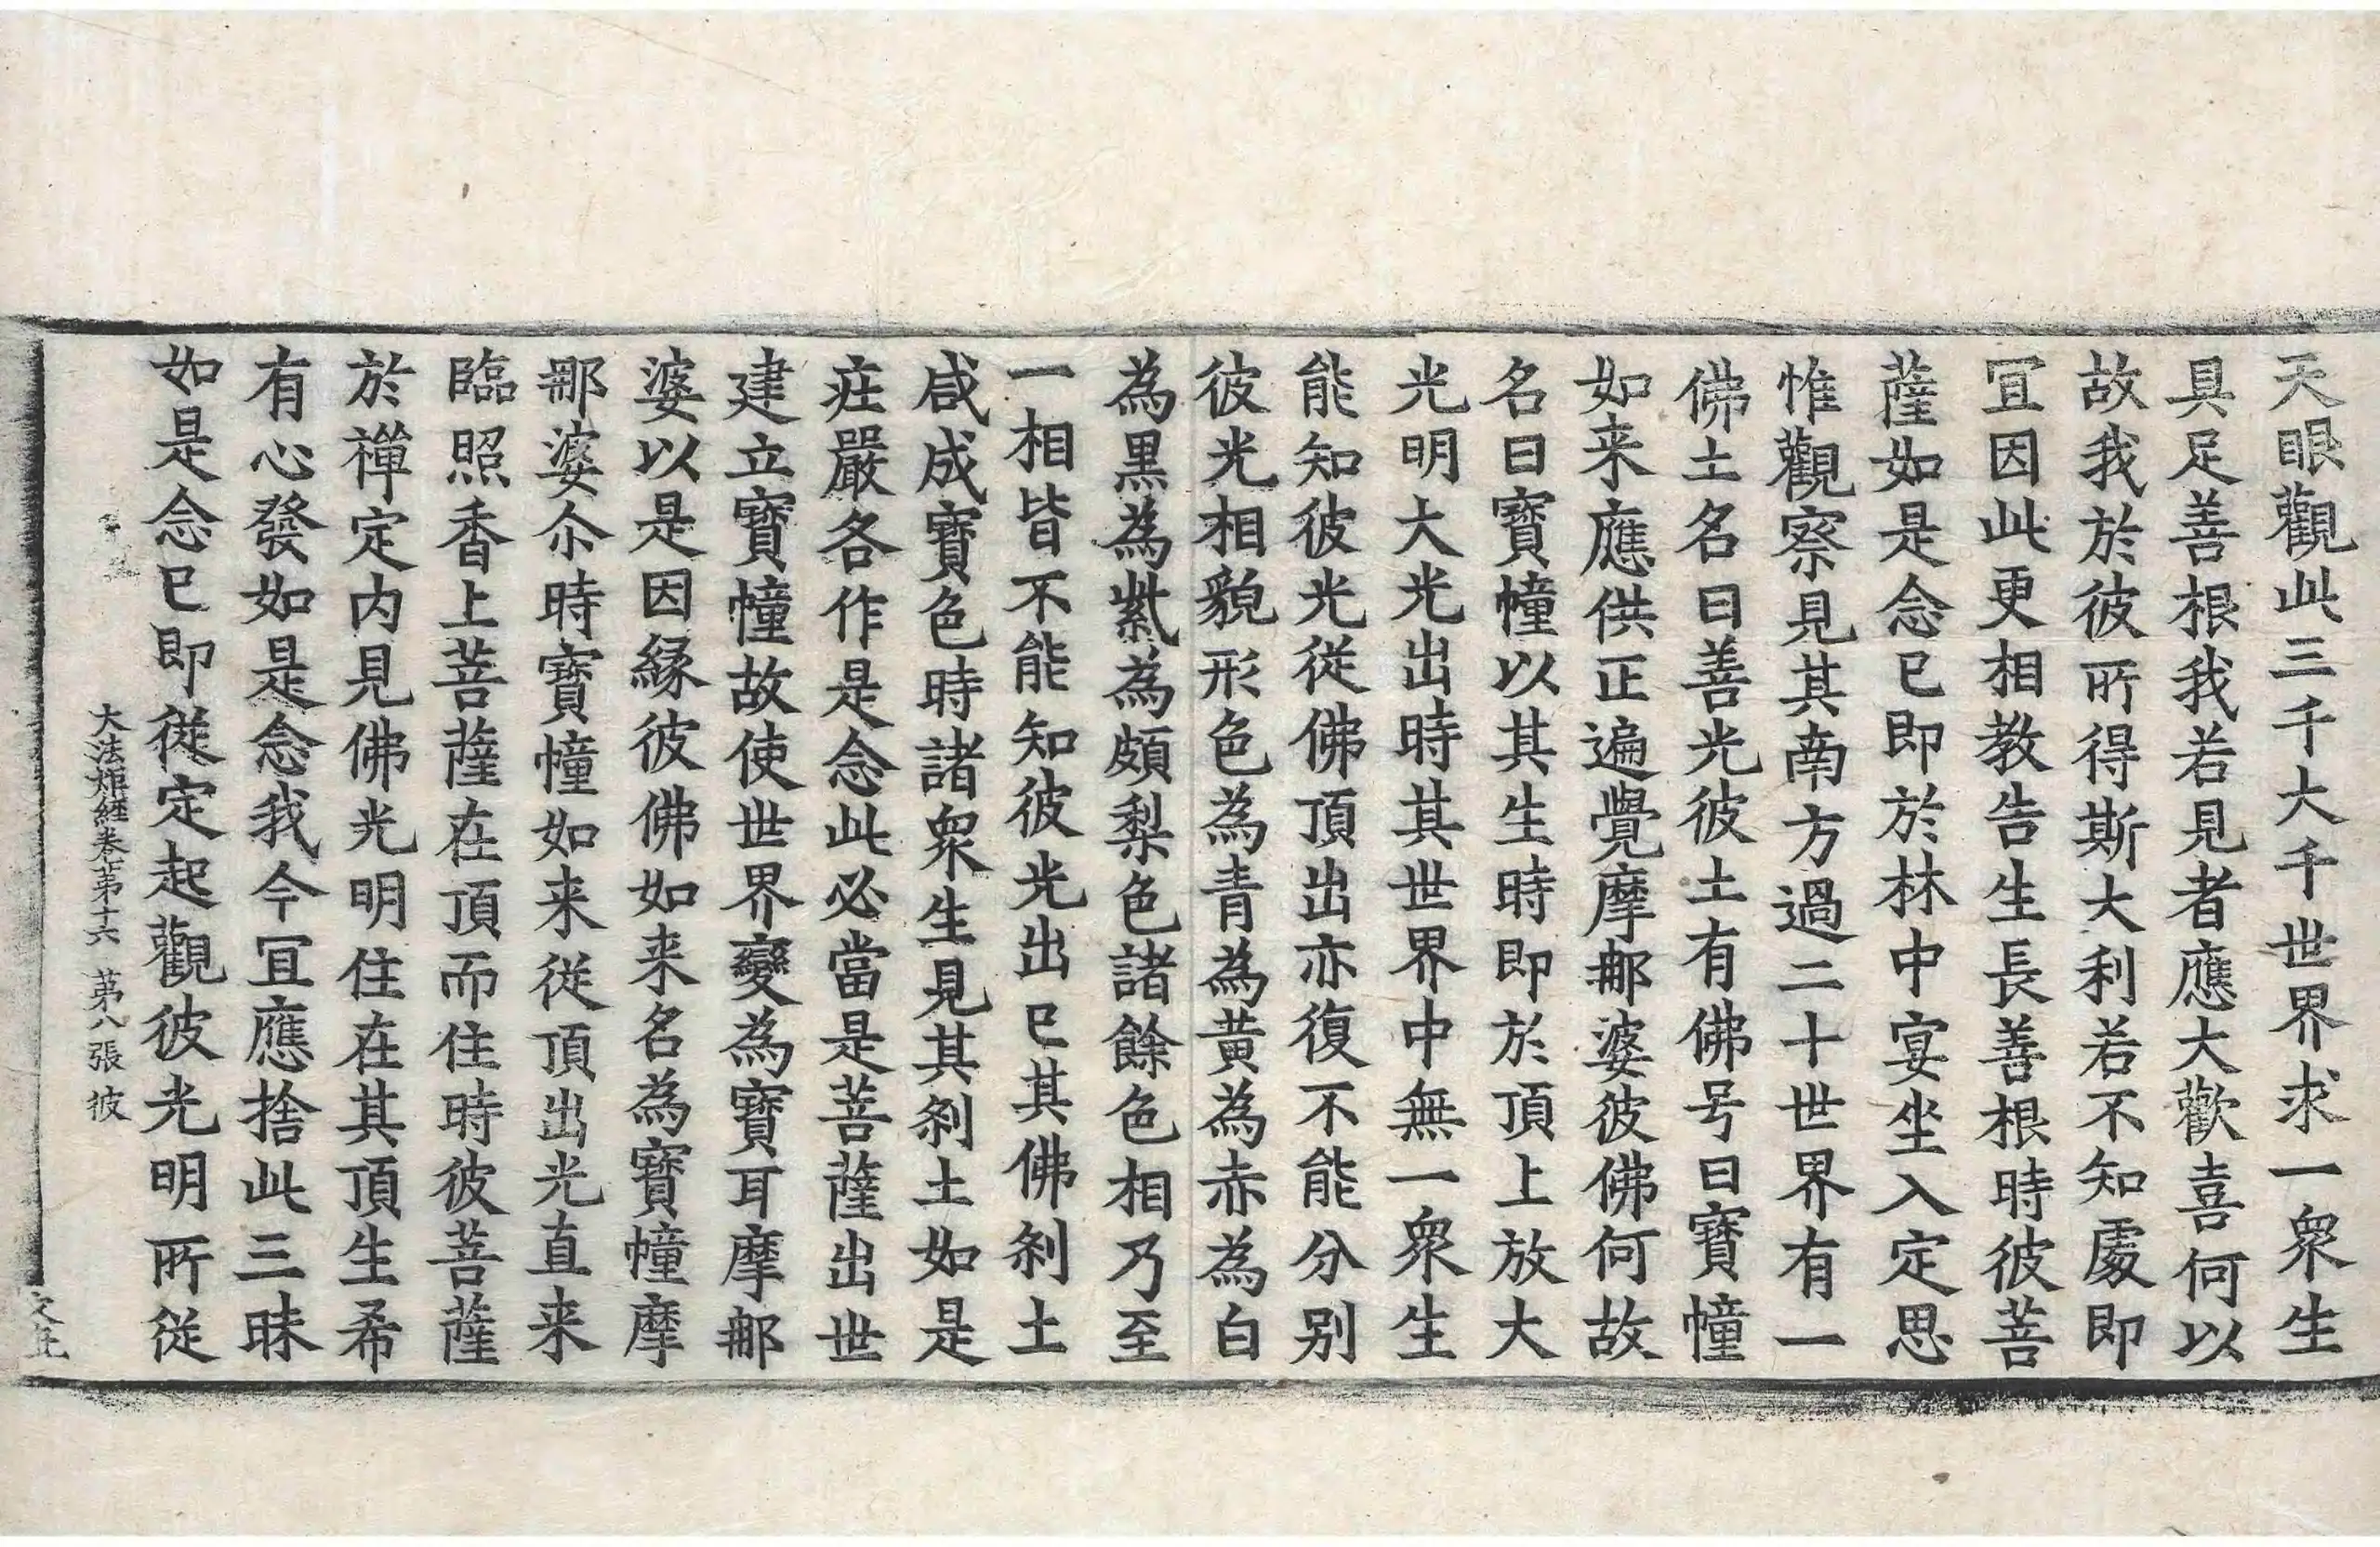 天眼觀此三千大千世界求一衆生
具足善根我若見者應大歡喜何以
故我於彼所得斯大利若不知處即
冝因此更相教告生長善根時彼菩
薩如是念已即於林中宴坐入定思
惟觀察見其南方過二十世界有一
佛土名曰善光彼土有佛号曰寶幢
如来應供正遍覺摩䣛婆彼佛何故
名曰寶幢以其生時即於頂上放大
光明大光出時其世界中無一衆生
能知彼光從佛頂出亦復不能分别
彼光相貌形色為青為黄為赤為白
為黒為紫為頗梨色諸餘色相乃至
一相皆不能知彼光出已其佛刹土
咸成寶色時諸衆生見其刹土如是
莊嚴各作是念此必當是菩薩出世
建立寶幢故使世界變為寶耳摩䣛
婆以是因縁彼佛如来名為寶幢摩
䣛婆尒時寶幢如来從頂出光直来
臨照香上菩薩在頂而住時彼菩薩
於禪定内見佛光明住在其頂生希
有心發如是念我今冝應捨此三昧
如是念已即從定起觀彼光明所從
大法炬經卷第十六 第八張 彼